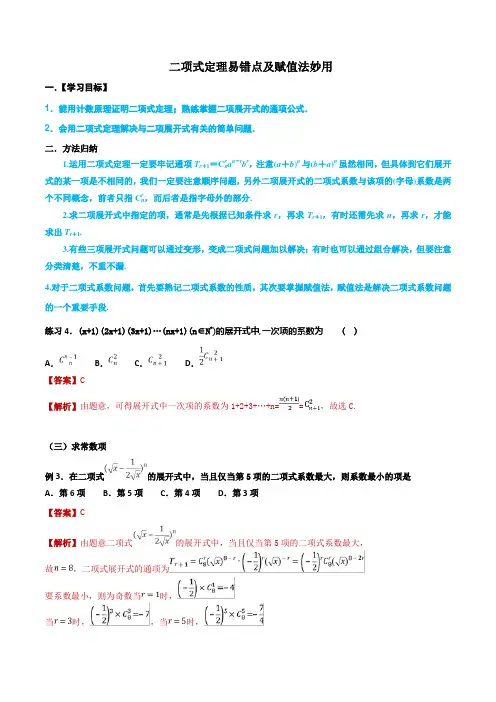 二项式定理易错点及赋值法妙用
一.【学习目标】
1．能用计数原理证明二项式定理；熟练掌握二项展开式的通项公式．
2．会用二项式定理解决与二项展开式有关的简单问题．
二．方法归纳
1.运用二项式定理一定要牢记通项 T_{r+1}＝C_n^r a^{n-r}b^r，注意(a＋b)^n 与(b＋a)^n 虽然相同，但具体到它们展开
式的某一项是不相同的，我们一定要注意顺序问题，另外二项展开式的二项式系数与该项的(字母)系数是两
个不同概念，前者只指 C_n^r，而后者是指字母外的部分.
2.求二项展开式中指定的项，通常是先根据已知条件求 r，再求 T_{r+1}，有时还需先求 n，再求 r，才能
求出 T_{r+1}.
3.有些三项展开式问题可以通过变形，变成二项式问题加以解决；有时也可以通过组合解决，但要注意
分类清楚，不重不漏.
4.对于二项式系数问题，首先要熟记二项式系数的性质，其次要掌握赋值法，赋值法是解决二项式系数问题
的一个重要手段.
练习 4．(x+1)(2x+1)(3x+1)…(nx+1)(n∈N^*)的展开式中,一次项的系数为 ( )
A．C_n^{n-1} B．C_n^2 C．C_{n+1}^2 D．\frac{1}{2}C_{n+1}^2
【答案】C
【解析】由题意，可得展开式中一次项的系数为 1+2+3+…+n=\frac{n(n+1)}{2}=C_{n+1}^2，故选 C.
（三）求常数项
例 3．在二项式(\sqrt{x}-\frac{1}{2\sqrt{x}})^n的展开式中，当且仅当第 5 项的二项式系数最大，则系数最小的项是
A．第 6 项 B．第 5 项 C．第 4 项 D．第 3 项
【答案】C
【解析】由题意二项式(\sqrt{x}-\frac{1}{2\sqrt{x}})^n的展开式中，当且仅当第 5 项的二项式系数最大，
故n=8，二项式展开式的通项为T_{r+1}=C_8^r(\sqrt{x})^{8-r}·(-\frac{1}{2})^r(\sqrt{x})^{-r}=(-\frac{1}{2})^r C_8^r(\sqrt{x})^{8-2r}
要系数最小，则为奇数当r=1时，(-\frac{1}{2})×C_8^1=-4
当r=3时，(-\frac{1}{2})^3×C_8^3=-7，当r=5时，(-\frac{1}{2})^5×C_8^5=-\frac{7}{4}